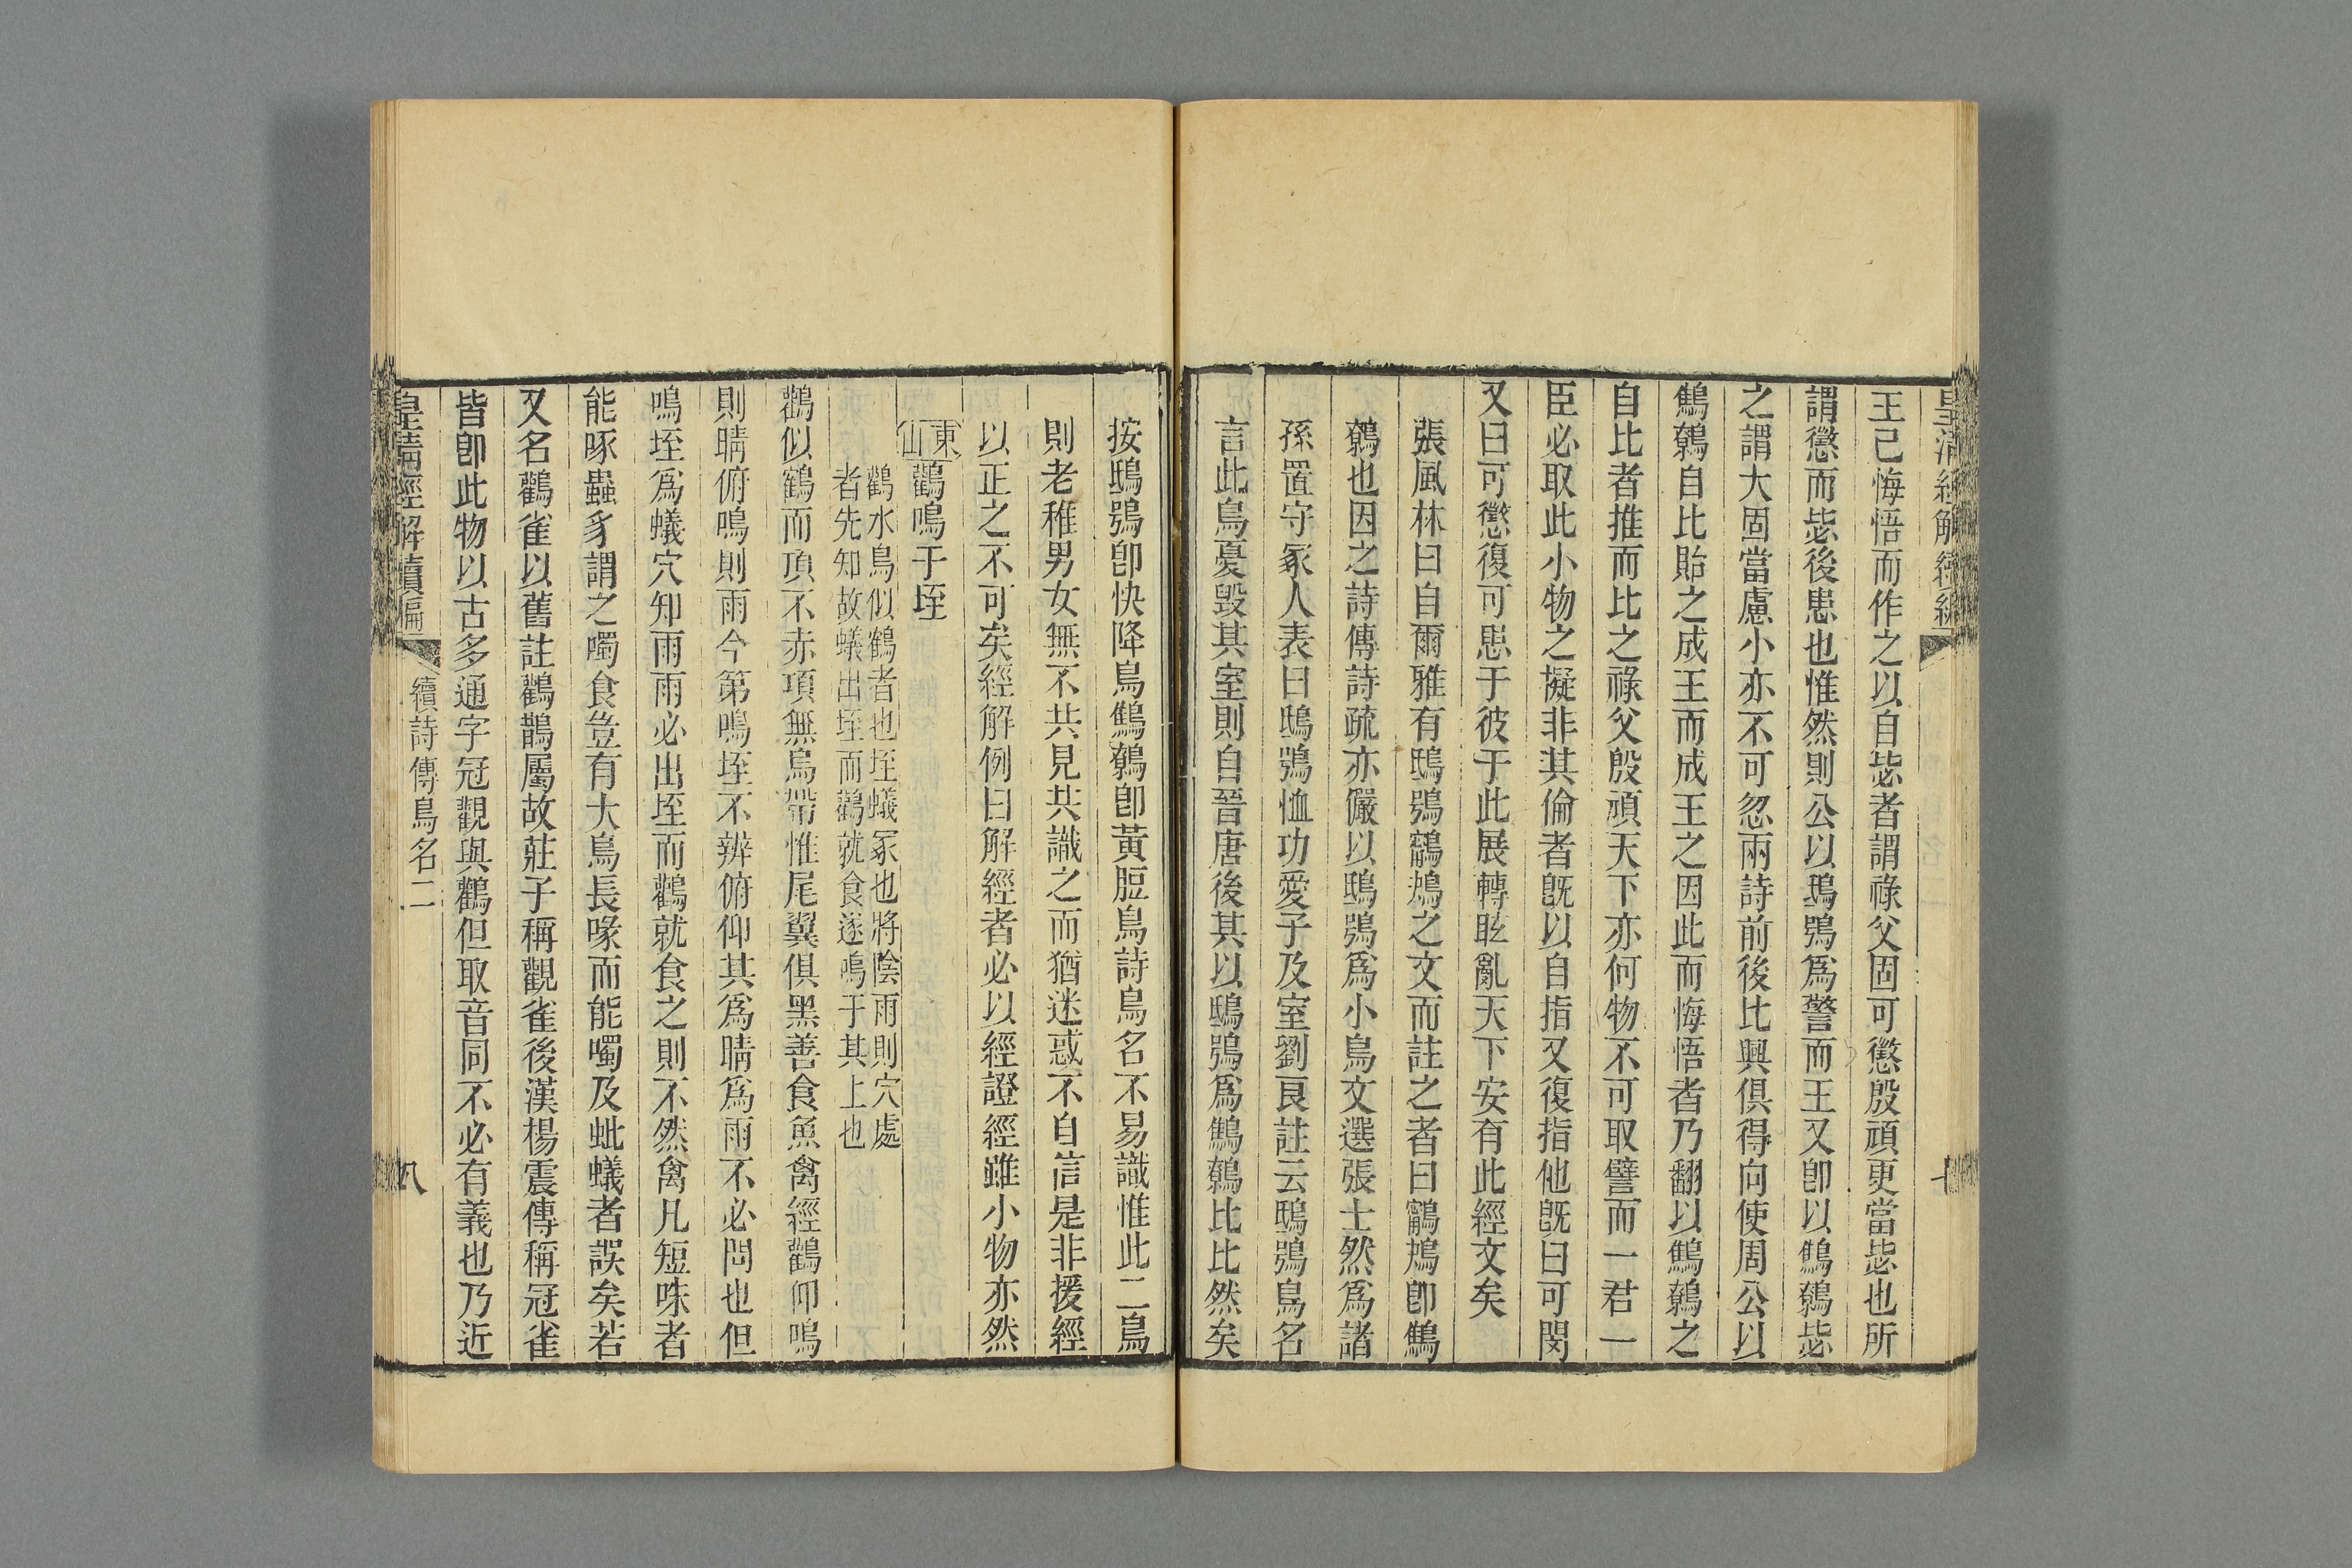 皇清經解續編
王已悔悟而作之以自毖者謂祿父固可懲殷頑更當毖也所
謂懲而毖後患也惟然則公以鴟鴞爲警而王又卽以鷦鷯毖
之謂大固當慮小亦不可忽兩詩前後比興俱得向使周公以
鷦鷯自比貽之成王而成王之因此而悔悟者乃翻以鷦鷯之
自比者推而比之祿父殷頑天下亦何物不可取譬而一君一
臣必取此小物之擬非其倫者旣以自指又復指他旣曰可閔
又曰可懲復可患于彼于此展轉眩亂天下安有此經文矣
張風林曰自爾雅有鴟鴞鸋鴂之文而註之者曰鸋鴂卽鷦
鷯也因之詩傳詩疏亦儼以鴟鴞爲小鳥文選張士然爲諸
孫置守冢人表曰鴟鴞恤功愛子及室劉良註云鴟鴞鳥名
言此鳥憂毀其室則自晉唐後其以鴟鴞爲鷦鷯比比然矣
按鴟鴞卽快降鳥鷦鷯卽黃脰鳥詩鳥名不易識惟此二鳥
則老稚男女無不共見共識之而猶迷惑不自信是非援經
以正之不可矣經解例曰解經者必以經證經雖小物亦然
東山 鸛鳴于垤
鸛水鳥似鶴者也垤蟻冢也將陰雨則穴處
者先知故蟻出垤而鸛就食遂鳴于其上也
鸛似鶴而頂不赤項無烏帶惟尾翼俱黑善食魚禽經鸛仰鳴
則晴俯鳴則雨今第鳴垤不辨俯仰其爲晴爲雨不必問也但
鳴垤爲蟻穴知雨雨必出垤而鸛就食之則不然禽凡短咮者
能啄蟲豸謂之噣食豈有大鳥長喙而能噣及蚍蟻者誤矣若
又名鸛雀以舊註鸛鵲屬故莊子稱觀雀後漢楊震傳稱冠雀
皆卽此物以古多通字冠觀與鸛但取音同不必有義也乃近
皇清經解續編
續詩傳鳥名二
八